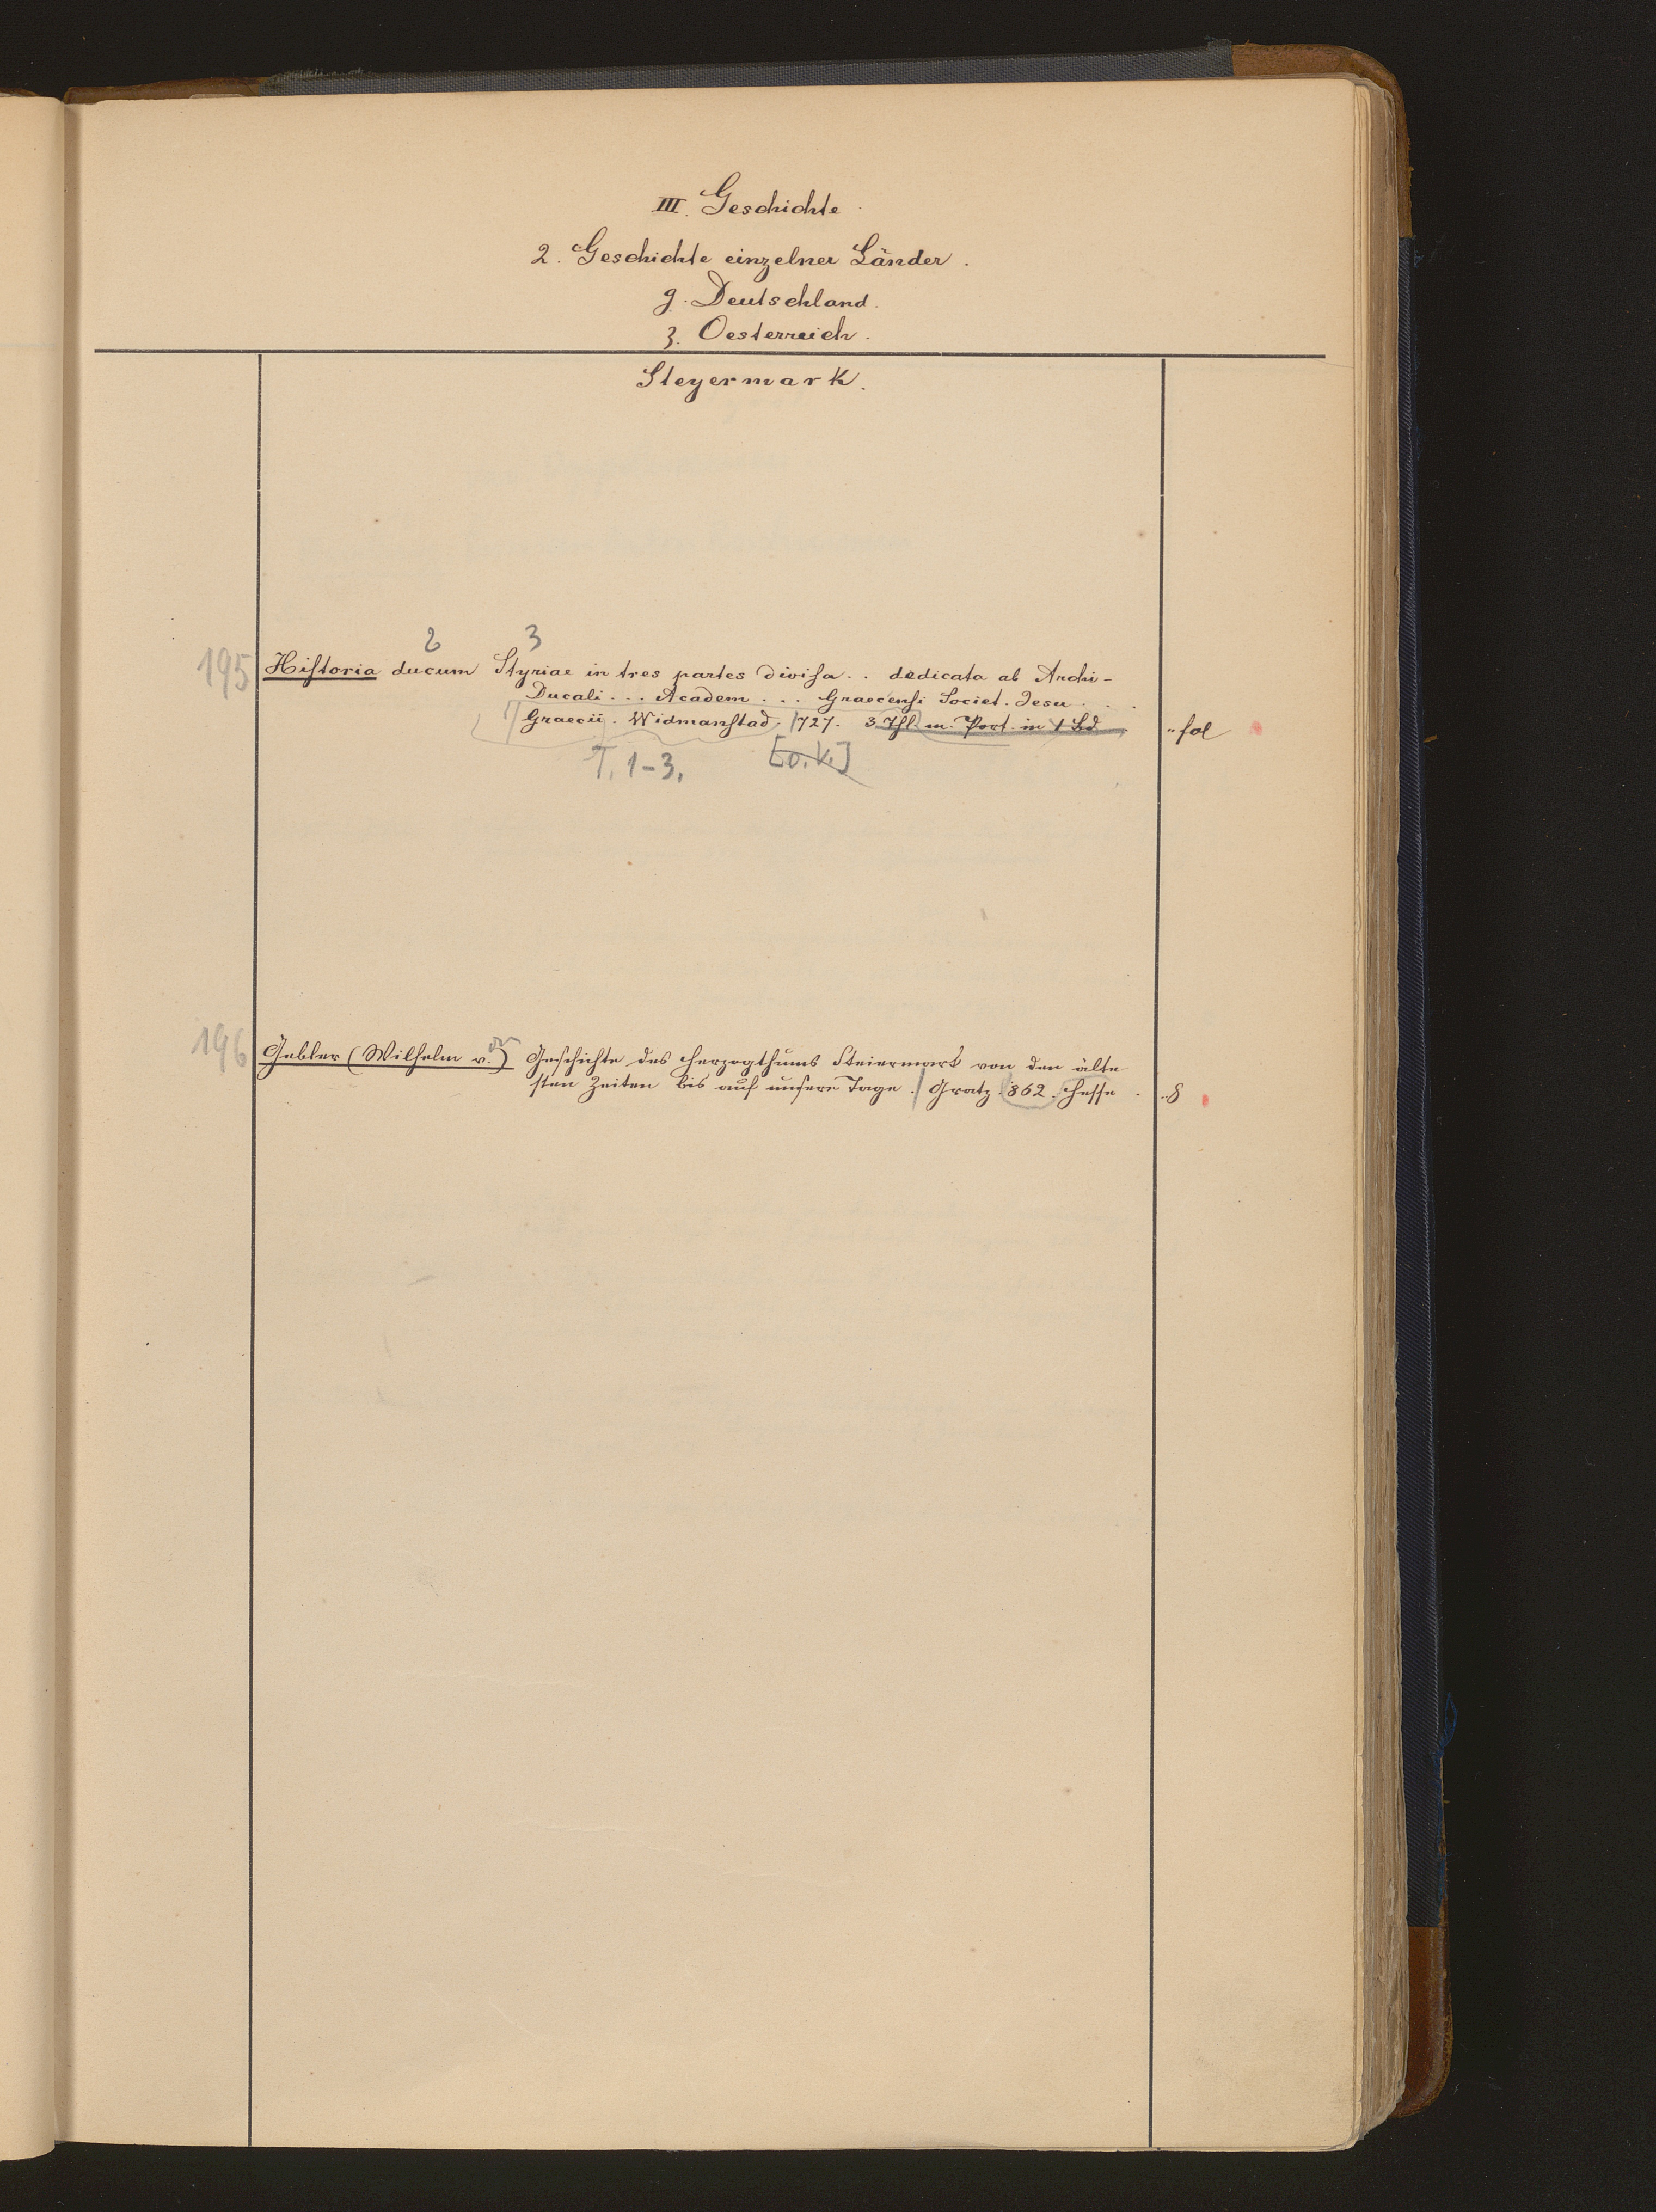 III. Geschichte.
2. Geschichte einzelner Länder.
g. Deutschland.
z. Oesterreich.
Steyermark.
2 3
195 Historia ducum Styriae in tres partes divisa.. dedicata ab Archi-
Ducali... Academ... Graecensi Societ. Jesu...
Graecii. Widmanstad. 1727. 3 Thl. m. Port. in 1 Bd. „fol
T. 1-3. [o. K.]
196 Gebler (Wilhelm v.) Geschichte des Herzogthums Steiermark von den älte
sten Zeiten bis auf unsere Tage. Gratz 862. Hesse. „8